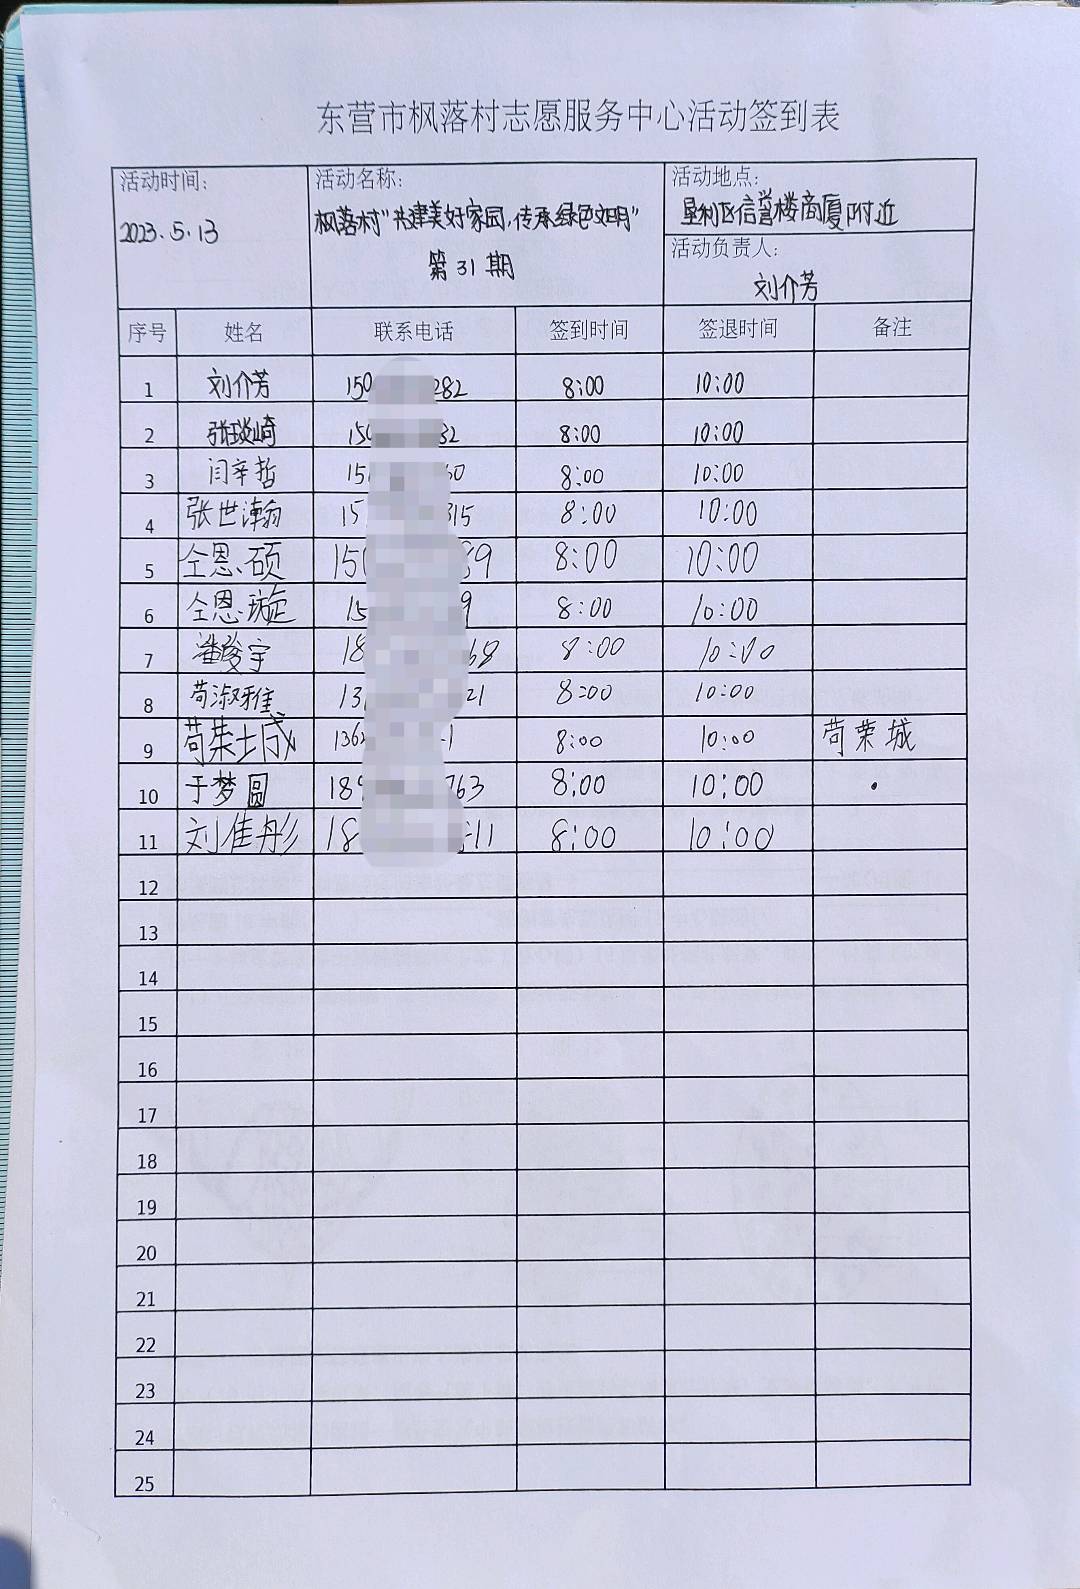 东营市枫落村志愿服务中心活动签到表
活动时间: 活动名称: 活动地点:
2023.5.13 枫落村"共建美好家园,传承绿色文明" 垦利区信誉楼商厦附近
第31期 活动负责人:
刘介芳
序号 姓名 联系电话 签到时间 签退时间 备注
1 刘介芳 150 282 8:00 10:00
2 张琰崎 150 32 8:00 10:00
3 闫辛哲 15 60 8:00 10:00
4 张世瀚 15 315 8:00 10:00
5 仝恩硕 150 89 8:00 10:00
6 仝恩璇 15 9 8:00 10:00
7 潘俊宇 18 68 8:00 10:00
8 苟淑雅 13 21 8:00 10:00
9 苟荣城 136 1 8:00 10:00 苟荣城
10 于梦圆 189 763 8:00 10:00
11 刘佳彤 18 11 8:00 10:00
12
13
14
15
16
17
18
19
20
21
22
23
24
25